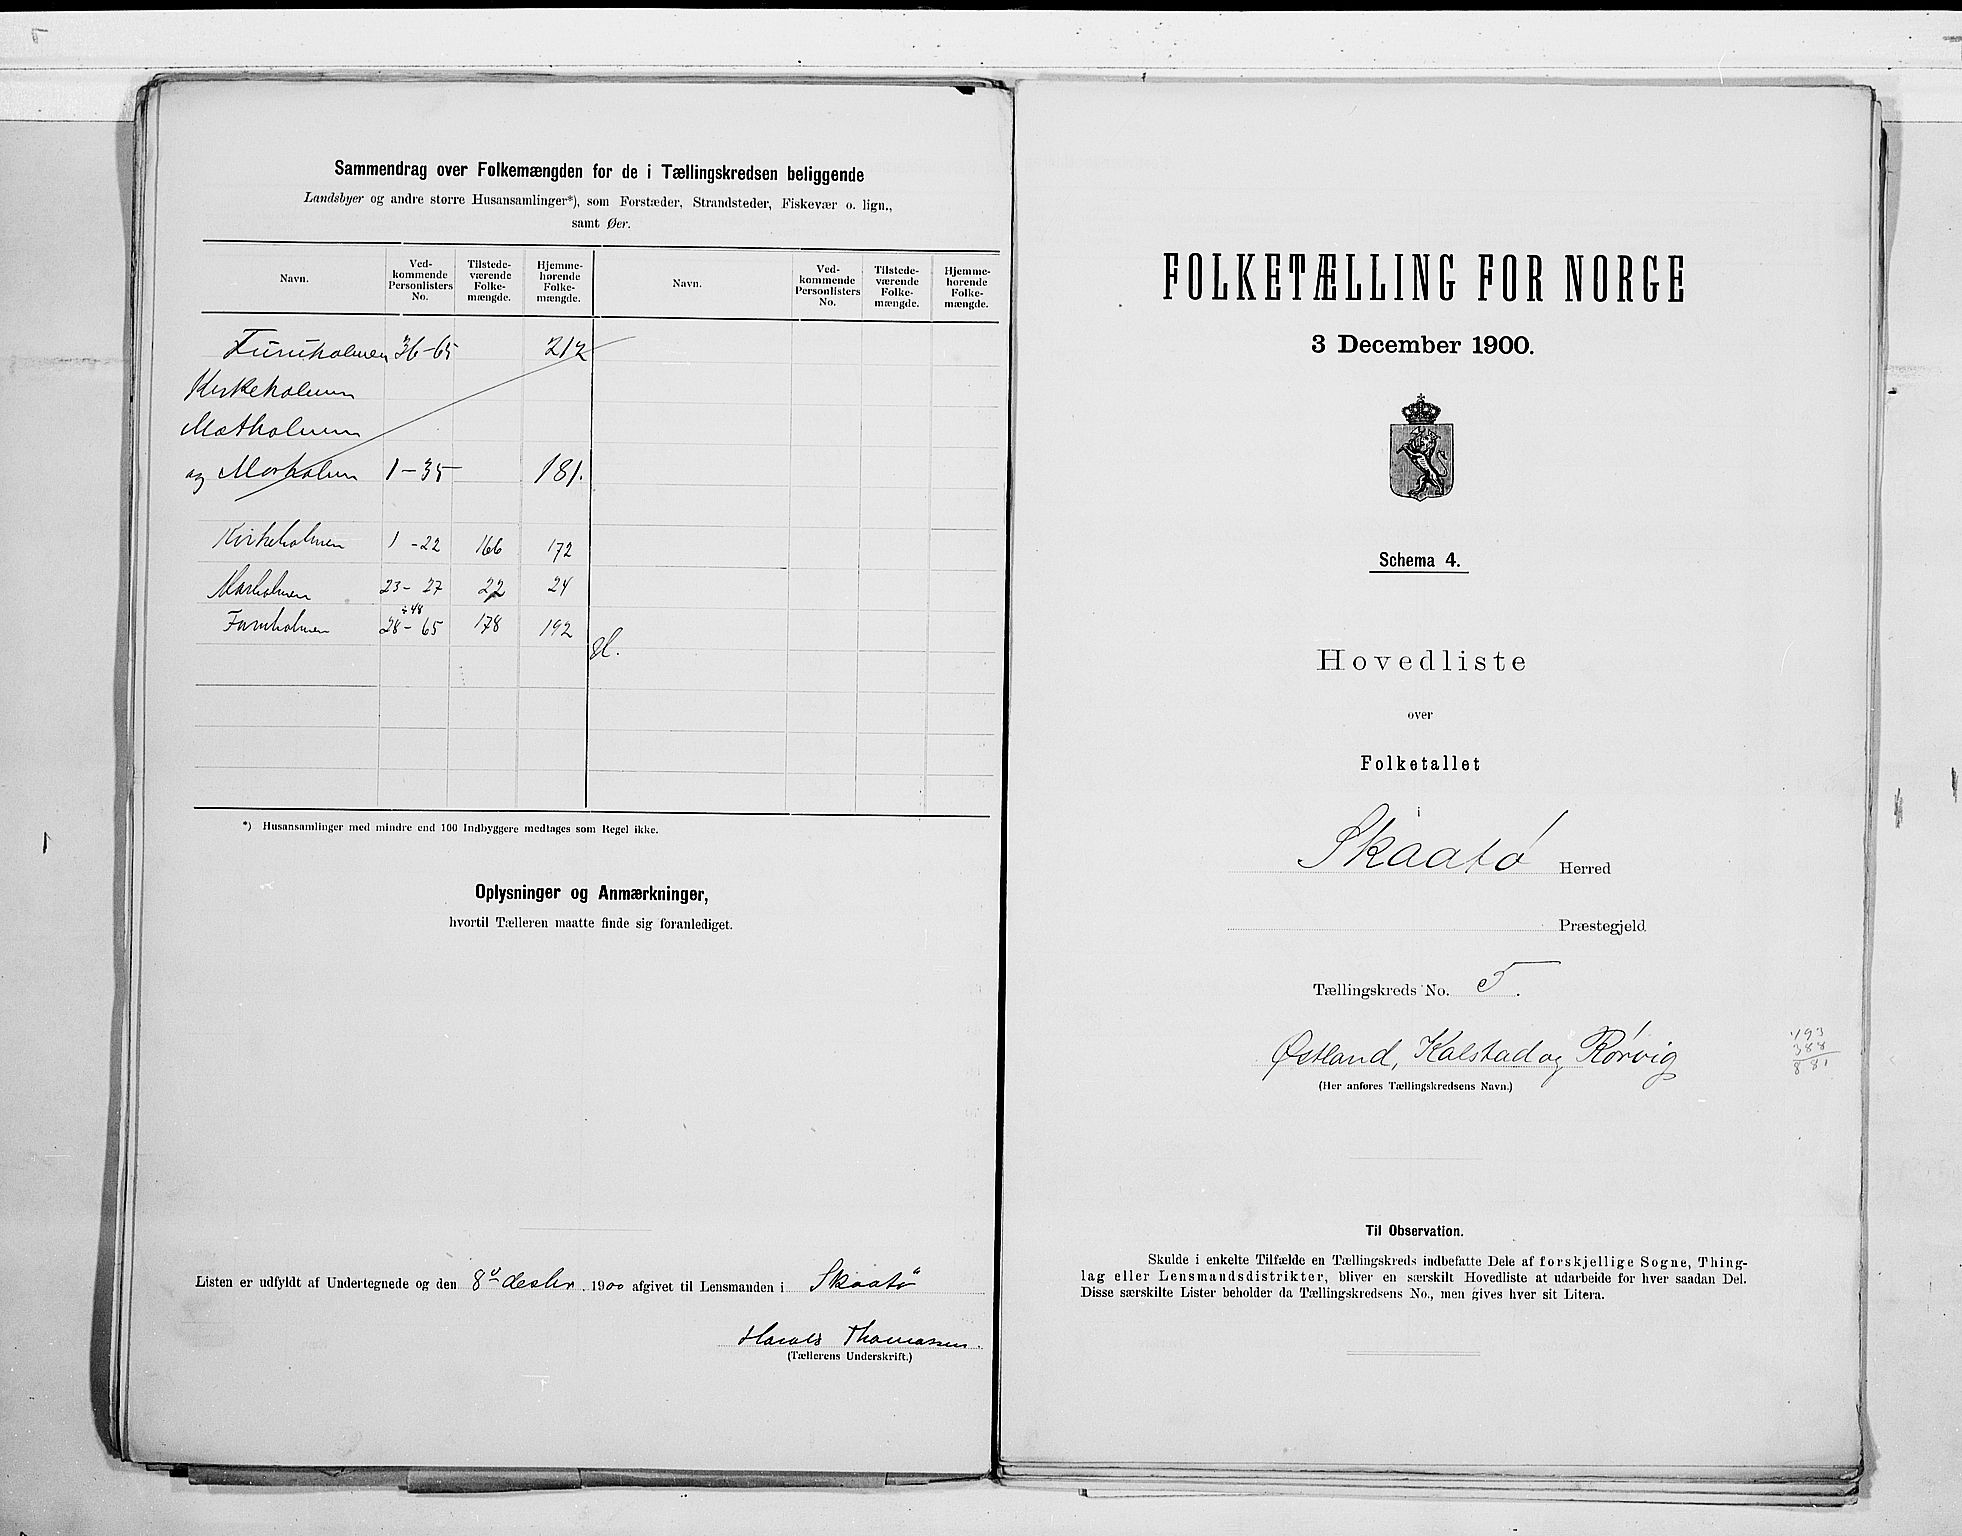 Sammendrag over Folkemængden for de i Tællingskredsen beliggende
Landsbyer og andre større Husansamlinger*), som Forstæder, Strandsteder, Fiskevær o. lign.,
samt Øer.
Navn. Ved-kommende Personlisters No. Tilstede-værende Folke-mængde. Hjemme-hørende Folke-mængde. Navn. Ved-kommende Personlisters No. Tilstede-værende Folke-mængde. Hjemme-hørende Folke-mængde.
Furuholmen 36-65 212
Kirkeholmen
Mætholmen
og Morholmen 1-35 181.
Kirkeholmen 1-22 166 172
Morholmen 23-27 22 24
÷48
Furuholmen 28-65 178 192
*) Husansamlinger med mindre end 100 Indbyggere medtages som Regel ikke.
Oplysninger og Anmærkninger,
hvortil Tælleren maatte finde sig foranlediget.
Listen er udfyldt af Undertegnede og den 8d desbr. 1900 afgivet til Lensmanden i Skaatø
Harals Thomassen.
(Tællerens Underskrift.)
FOLKETÆLLING FOR NORGE
3 December 1900.
Schema 4.
Hovedliste
over
Folketallet
i
Skaatø Herred
Præstegjeld
Tællingskreds No. 5.
Østland, Kalstad og Rørvig
(Her anføres Tællingskredsens Navn.)
493
388
881
Til Observation.
Skulde i enkelte Tilfælde en Tællingskreds indbefatte Dele af forskjellige Sogne, Thing-
lag eller Lensmandsdistrikter, bliver en særskilt Hovedliste at udarbeide for hver saadan Del.
Disse særskilte Lister beholder da Tællingskredsens No., men gives hver sit Litera.